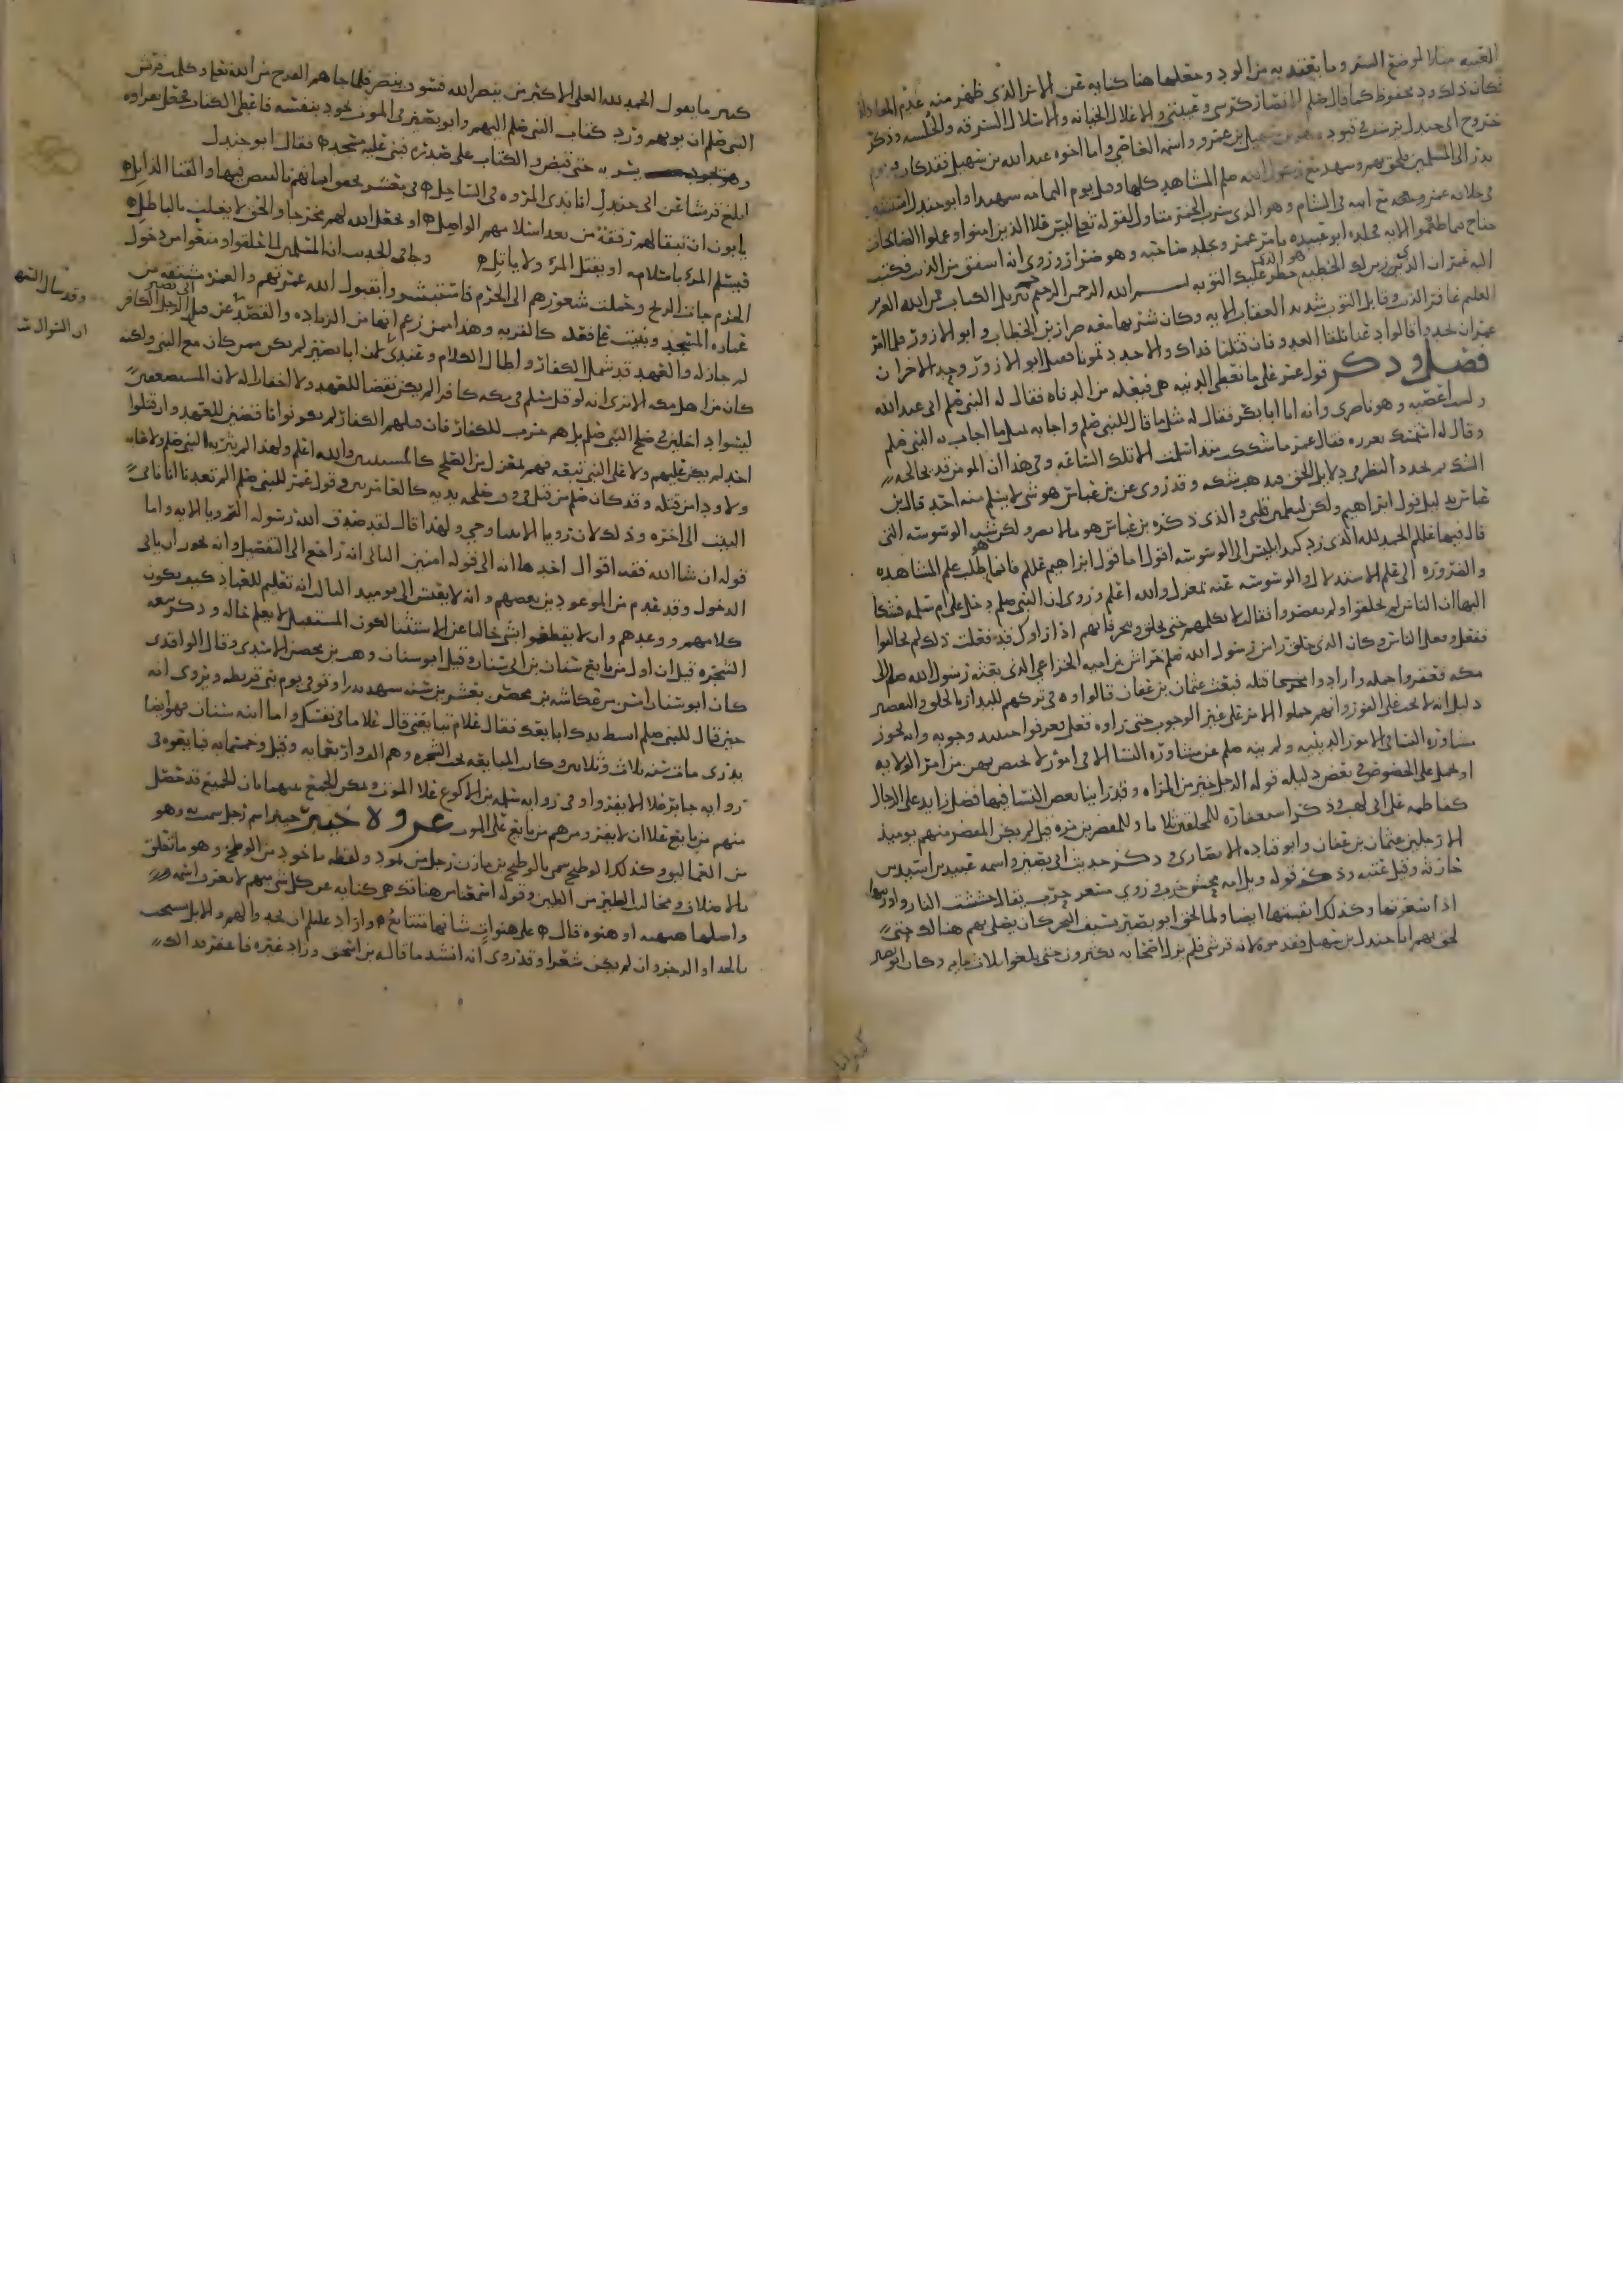 العيبة مثلا لموضع الستر وما يعتقد به من الود وجعلها هنا كناية عن الامر الذي ظهر منه عدم المعاداة
فكان ذلك ود محفوظ كما قال صلم الانصار كرشي وعيبتي والاغلال الخيانة والاسلال السرقة والخلسة وذكر
خروج ابي جندل يرسف في قيود سهيل بن عمرو واسمه العاصي واما اخوه عبد الله بن سهيل فقد كان يوم
بدر الى المسلمين فلحق بهم وشهد مع رسول الله صلم المشاهد كلها وقتل يوم اليمامة شهيدا وابو جندل استشهد
في خلافة عمر مع ابيه في الشام وهو الذي شرب الخمر متاول لقوله تعلى ليس على الذين امنوا وعملوا الصالحات
جناح فيما طعموا الاية فجلده ابو عبيدة بامر عمر وجلد صاحبه وهو ضرار وروي انه اشفق من الذنب فكتب
اليه عمر ان الذي زين لك الخطية هو الذي حظر عليك التوبة بسم الله الرحمن الرحيم حم تنزيل الكتاب من الله العزيز
العليم غافر الذنب وقابل التوب شديد العقاب الاية وكان شربها معه ضرار بن الخطاب وابو الازور فلما امر
عمر ان يحدوا قالوا دعنا نلقا العدو فان قتلنا فذاك والا حددتمونا فقتل ابو الازور وحد الاخران
فصل وذكر قول عمر على ما نعطى الدنية هي فعيلة من الدناة فقال له النبي صلم اني عبد الله
ولست اعصيه وهو ناصري وانه اتا ابا بكر فقال له مثل ما قال للنبي صلم واجابه مثل ما اجاب به النبي صلم
وقال له استمسك بغرزه فقال عمر ما شككت منذ اسلمت الا تلك الساعة وفي هذا ان المومن قد يخالجه
الشك ثم يجدد النظر في دلايل الحق فيذهب شكه وقد روي عن بن عباس هو شي لا يسلم منه احد قال بن
عباس بدليل قول ابراهيم ولكن ليطمين قلبي والذي ذكره بن عباس هو ما لا يضر ولكن هو شبه الوسوسة التي
قال فيها عليلم الحمد لله الذي رد كيد ابليس الى الوسوسة اقول اما قول ابراهيم عليلم فانما طلب علم المشاهدة
والضرورة الى علم الاستدلال والوسوسة عنه بمعزل والله اعلم وروي ان النبي صلم دخل على ام سلمة فشكا
اليها ان الناس لم يحلقوا ولم يقصروا فقال لا تكلمهم حتى تحلق وتنحر فانهم اذا راوك قد فعلت ذلك لم يخالفوا
ففعل وفعل الناس وكان الذي حلق راس رسول الله صلم خراش بن امية الخزاعي الذي بعثه رسول الله صلم الى
مكة فعقروا جمله وارادوا قتله فبعث عثمان بن عفان قالوا وفي تركهم للبدار بالحلق والتقصير
دليل انه لا يجب على الفور وانهم حملوا الامر على غير الوجوب حتى راوه فعل فعرفوا وجوبه وانه يجوز
مشاورة النسا في الامور الدينية ولم ينه صلم عن مشاورة النسا الا في امور لا تختص بهن من امر الولاية
او يحمل على الخصوص في بعض دليله قوله الرجل خير من المراة وقد راينا بعض النسا فيها فضل زايد على الرجال
كفاطمة على ابي لهب وذكر استغفاره للمحلقين ثلاثا وللمقصرين مرة قيل لم يكن المقصر منهم يوميذ
الا رجلين عثمان بن عفان وابو قتادة الانصاري وذكر حديث ابي بصير واسمه عتبة بن اسيد بن
جارية وقيل عتبة وذكر قوله ويل امه محش حرب وروي مسعر حرب يقال حششت النار واورثتها
اذا اسعرتها وكذلك اثقبتها ايضا ولما لحق ابو بصير بسيف البحر كان يصلي بهم هنالك حتى
لحق بهم ابا جندل بن سهيل فقدموه لانه قرشي فلم يزل اصحابه يكثرون حتى بلغوا ثلاث ماية وكان ابو بصير
كثير ما يقول الحمد لله العلي الاكثر من ينصر الله فسوف ينصر فلما جاهم الفرج من الله تعلى وكلمت قريش
النبي صلم ان يوويهم ورد كتاب النبي صلم اليهم وابو بصير في الموت يجود بنفسه فاعطى الكتاب فجعل يقراه
ويسر به حتى قبض والكتاب على صدره فبنى عليه مسجد فقال ابو جندل
ابلغ قريشا عن ابي جندل انا بذي المروة في الساحل في معشر تخفق ايمانهم بالبيض فيها والقنا الذابل
يابون ان تبقا لهم رفقة من بعد اسلامهم الواصل او يجعل الله لهم مخرجا والحق لا يغلب بالباطل
فيسلم المرء باسلامه او يقتل المرء ولا ياتل وجا في الحديث ان المسلمين لما حلقوا ومنعوا من دخول
الحرم جات الريح وحملت شعورهم الى الحرم فاستبشروا بقبول الله عمرتهم والعمرة مشتقة من
عمارة المسجد وبنيت على فعلة كالقربة وهذا ممن زعم انها من الزيارة والقصد عن قتل ابي بصير الرجل الكافر
لم جاز له والعهد قد شمل الكفار واطال الكلام وعندي ان ابا بصير لم يكن ممن كان مع النبي ولكنه
كان من اهل مكة الا ترى انه لو قتل مسلم في مكة كافرا لم يكن نقضا للعهد ولا اخفارا له لان المستضعفين
ليسوا داخلين في صلح النبي صلم بل هم حرب للكفار فان قتلهم الكفار لم يكونوا ناقضين للعهد وان قتلوا
احدا لم يكن عليهم ولا على النبي تبعة فهم بمعزل من الصلح كالمسببين والله اعلم ولهذا لم يثربه النبي صلم ولا عابه
ولا ودا من قتله وقد كان صلم من قتل في صلحه يديه كالعامريين وقول عمر للنبي صلم الم تعدنا انا ناتي
البيت الى اخره وذلك لان رويا الانبيا وحي ولهذا قال لقد صدق الله رسوله الرويا الاية واما
قوله ان شا الله ففيه اقوال احدها انه الى قوله امنين الثاني انه راجع الى التفصيل وانه يجوز ان ياتي
الدخول وقد عدم من الموعودين بعضهم وانه لا يعيش الى يوميذ الثالث انه تعليم للعباد كيف يكون
كلامهم ووعدهم وان لا يقطعوا بشي خاليا عن الاستثنا لكون المستقبل لا يعلم حاله وذكر بيعة
الشجرة قيل ان اول من بايع سنان بن ابي سنان وقيل ابو سنان وهب بن محصن الاسدي وقال الواقدي
كان ابو سنان اسن من عكاشة بن محصن بعشرين سنة شهد بدرا وتوفي يوم بني قريظة ويروى انه
حين قال للنبي صلم ابسط يدك ابايعك فقال علام تبايعني قال على ما في نفسك واما ابنه سنان فهو ايضا
بدري مات سنة ثلاث وثلاثين وكانت المبايعة تحت الشجرة وهم الف واربعماية وقيل وخمسماية فبايعوه في
رواية جابر على الا يفروا وفي رواية سلمة بن الاكوع على الموت ويمكن الجمع بينهما بان الجميع قد حصل
منهم من بايع على ان لا يفر ومنهم من بايع على الموت غزوة خيبر خيبر اسم رجل سميت به وهو
من العماليق وكذلك الوطيح سمي بالوطيح بن مازن رجل من ثمود ولفظه ماخوذ من الوطح وهو ما تعلق
بالاظلاف ومخالب الطير من الطين وقوله اسمعنا من هناتك هي كناية عن كل شي لا يعرف اسمه
واصلها هنهة او هنوة قال على هنوات شانها متتابع واراد عليلم ان يحدو لهم والابل تستحب
بالحدا والرجز وان لم يكن شعرا وقد روي انه انشد ما قاله بن اسحق وزاد غيره فاغفر فدا لك